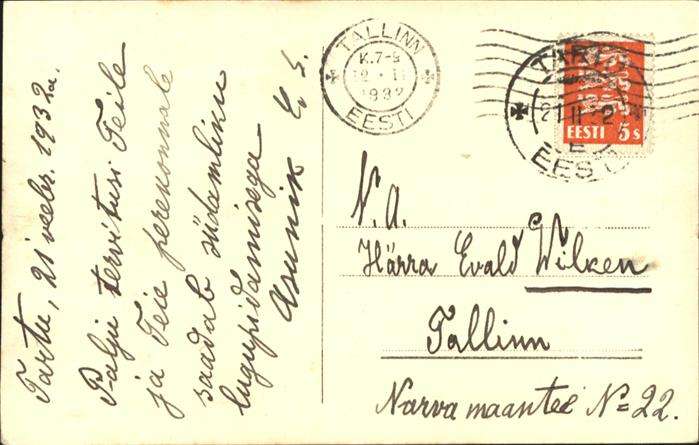 Tartu, 21 veebr. 1932a.
Palju tervitusi Teile
ja Teie perekonnale
saadab südamliku
lugupidamisega
TALLINN
K.7-9
1932
EESTI
TARTU
EESTI
EESTI 5 s
V.A.
Härra Evald Wilken
Tallinn
Narva maantee №22.